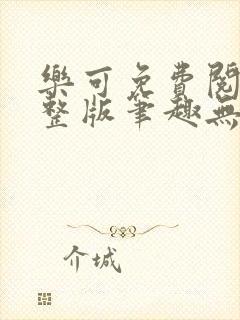 樂可免費閱
整版筆趣無
介城